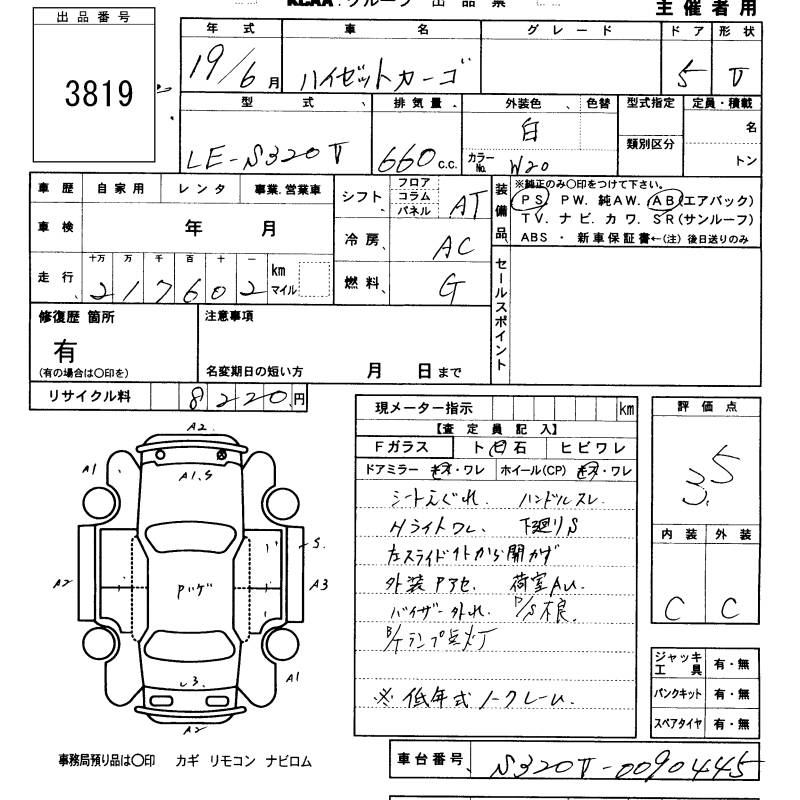 KCAA. グループ 出品票
主催者用
出品番号
3819
年式 車名 グレード ドア 形状
19/6月 ハイゼットカーゴ 5 V
型式 排気量 外装色 色替 型式指定 定員・積載
LE-S320V 660 c.c. 白 名
類別区分
カラーNo. W20 トン
車歴 自家用 レンタ 事業.営業車
車検 年 月
走行 十万 万 千 百 十 一
217602 km マイル
シフト フロア コラム パネル AT
冷房 AC
燃料 G
装備品 ※純正のみ〇印をつけて下さい。
PS PW. 純AW. AB(エアバック)
TV. ナビ. カワ. SR(サンルーフ)
ABS ・ 新車保証書←(注) 後日送りのみ
セールスポイント
修復歴 箇所
有
(有の場合は〇印を)
注意事項
名変期日の短い方 月 日まで
リサイクル料 8220円
現メーター指示 km
【査定員記入】
Fガラス ト 石 ヒビワレ
ドアミラー ・ワレ ホイール(CP) ・ワレ
シートえぐれ. ハンドルスレ.
Hライトワレ. 下廻りS
左スライド外から開かず
外装Pアセ. 荷室AU.
バイザー外れ. P/S不良.
B/Tランプ点灯
※ 低年式ノークレーム.
評価点
3.5
内装 外装
C C
ジャッキ工具 有・無
パンクキット 有・無
スペアタイヤ 有・無
A2
A1 A1.S
S.
A2 Pハゲ A3
A1
A2
事務局預り品は〇印 カギ リモコン ナビロム
車台番号 S320V-0090445